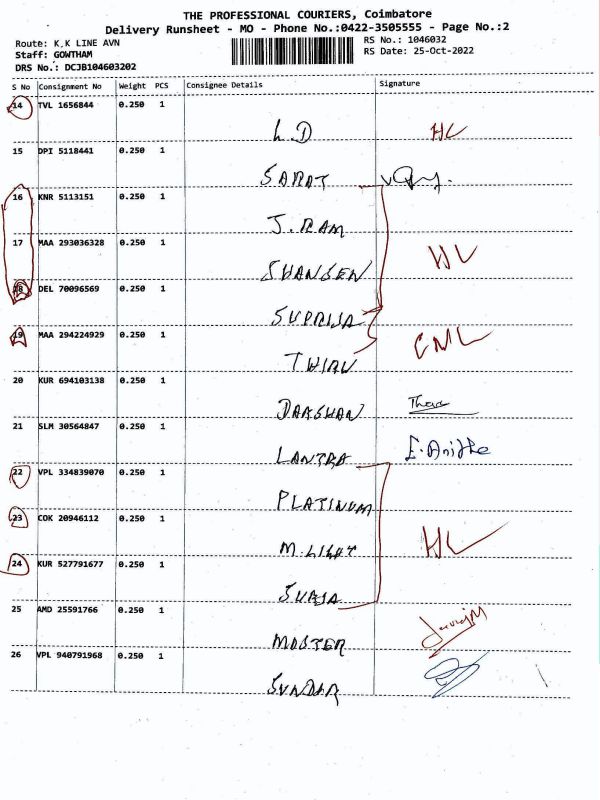 THE PROFESSIONAL COURIERS, Coimbatore
Delivery Runsheet - MO - Phone No.:0422-3505555 - Page No.:2
Route: K,K LINE AVN
RS No.: 1046032
Staff: GOWTHAM
RS Date: 25-Oct-2022
DRS No.: DCJB104603202
S No Consignment No Weight PCS Consignee Details Signature
14 TVL 1656844 0.250 1
L D HL
15 DPI 5118441 0.250 1
SARAT
16 KNR 5113151 0.250 1
J.RAM
17 MAA 293036328 0.250 1
HL
18 DEL 70096569 0.250 1
SUPRIJA
19 MAA 294224929 0.250 1
CNL
20 KUR 694103138 0.250 1
DAASHAN
21 SLM 30564847 0.250 1
LANTRA E.Anithe
22 VPL 334839070 0.250 1
PLATINUM
23 COK 20946112 0.250 1
M.LIGHT HL
24 KUR 527791677 0.250 1
25 AMD 25591766 0.250 1
MOSTER
26 VPL 940791968 0.250 1
SUNDER